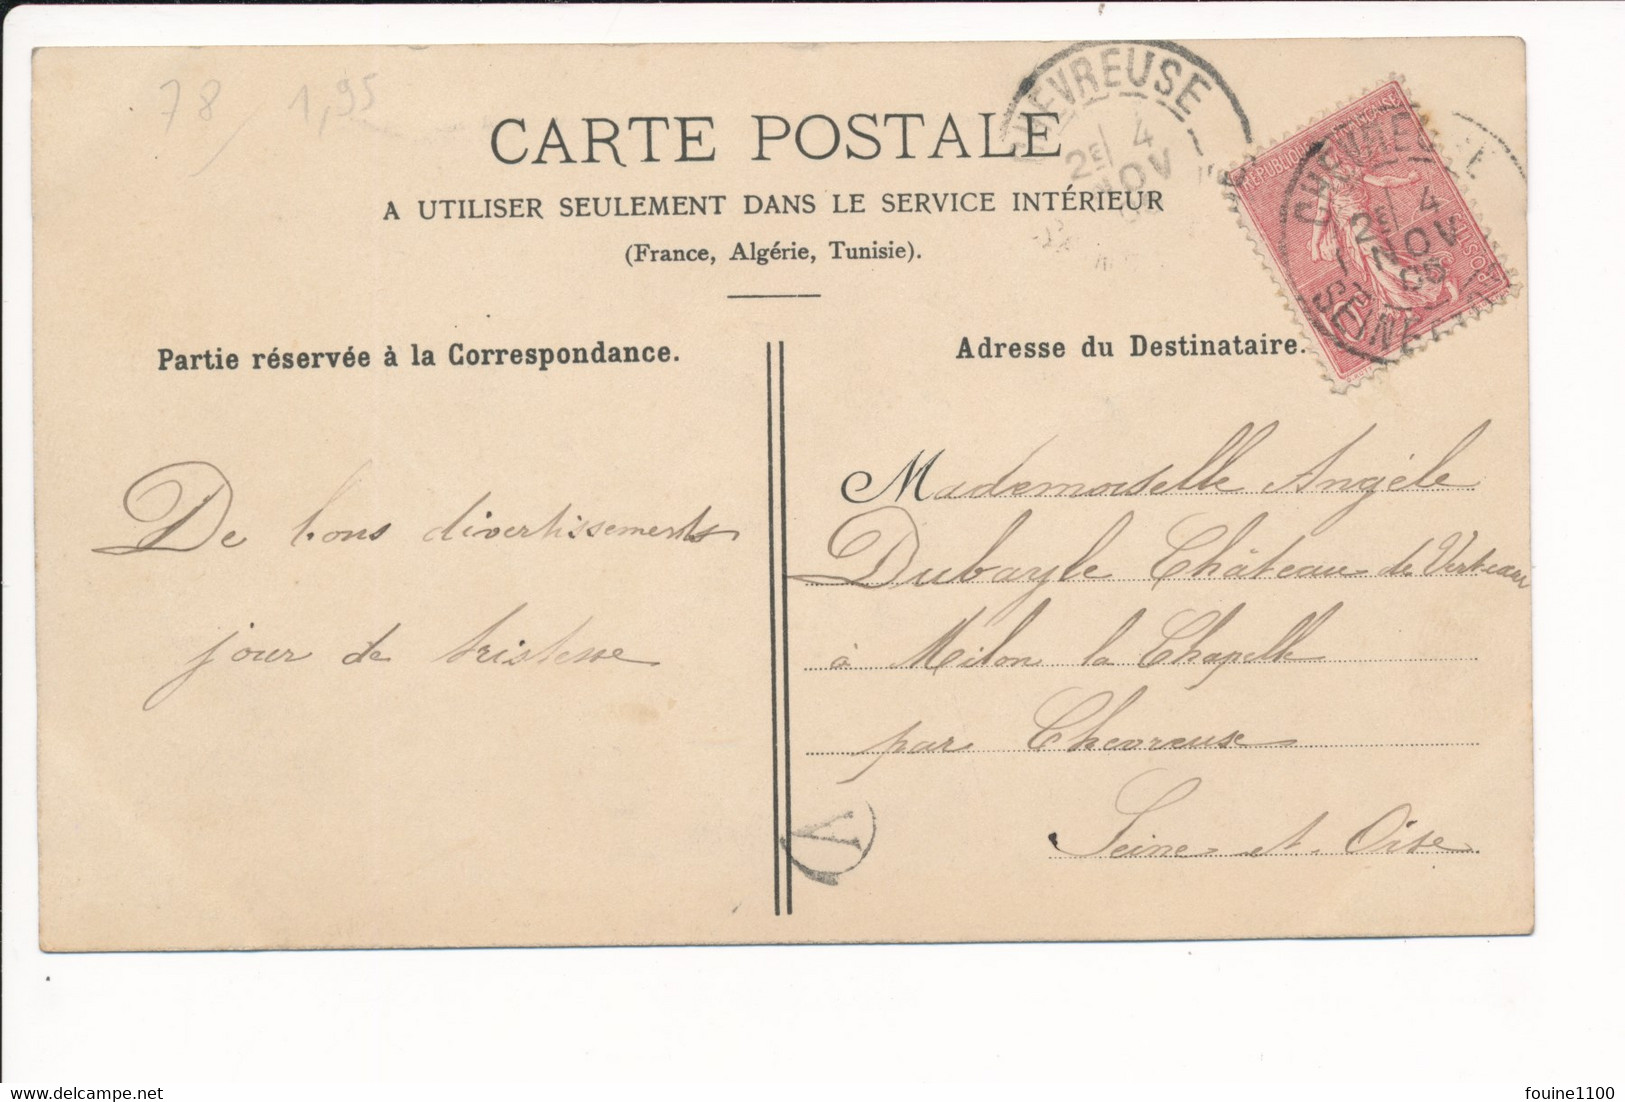 78 / 1,95
CARTE POSTALE
A UTILISER SEULEMENT DANS LE SERVICE INTÉRIEUR
(France, Algérie, Tunisie).
CHEVREUSE
2E 4
NOV
RÉPUBLIQUE FRANÇAISE
POSTES
CHEVREUSE
2E 4
NOV
05
SEINE
Partie réservée à la Correspondance.
De bons divertissements
jour de tristesse
Adresse du Destinataire.
Mademoiselle Angèle
Dubayle Château de Vert-cœur
à Milon la Chapelle
par Chevreuse
Seine et Oise
A
www.delcampe.net
fouine1100